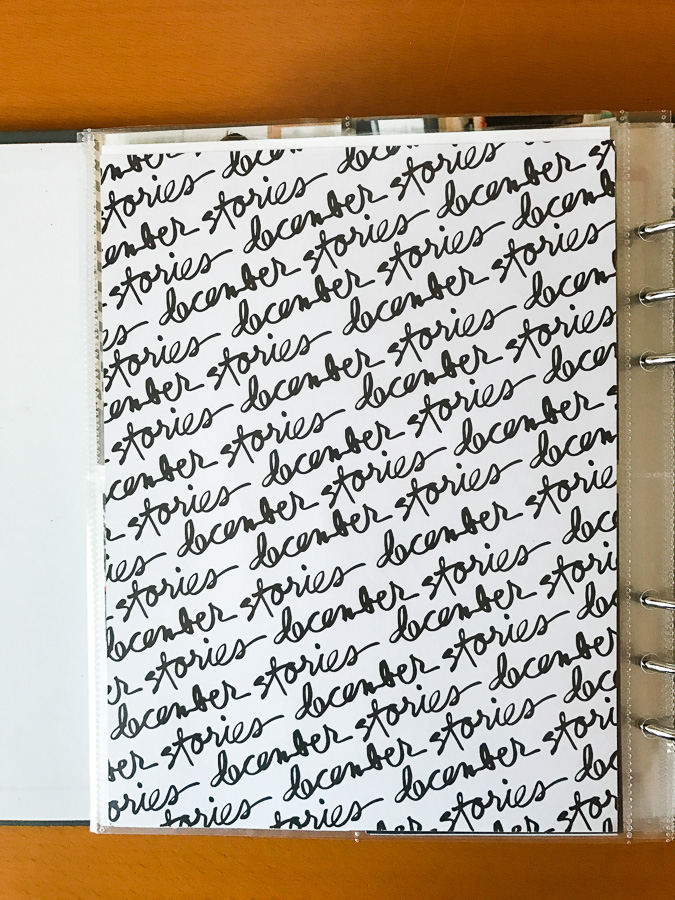 mber
stories decem
ember stories decem
stories december stories
es december stories december st
stories december stories decemb
ember stories december stories
stories december stories decem
cember stories december stories
r stories december stories decem
ies december stories december s
stories december stories decem
december stories december storie
er stories december stories dec
december stories december stori
ber stories december stories de
ories december stories december
tories december stories de
tories december stori
ber stories dec
ber stor